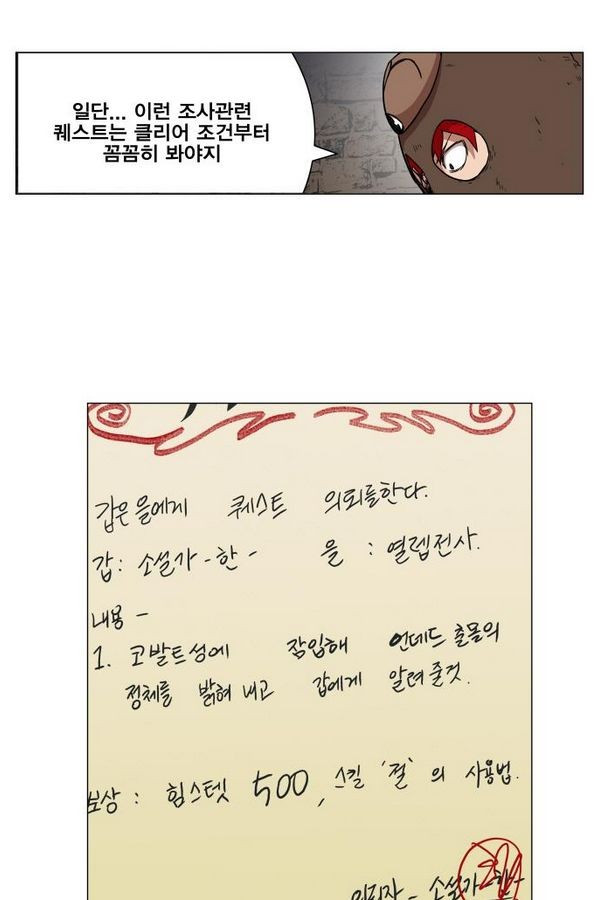 일단... 이런 조사관련
퀘스트는 클리어 조건부터
꼼꼼히 봐야지
갑은 을에게 퀘스트 의뢰를한다.
갑: 소설가 -한- 을 : 열렙전사.
내용 -
1. 코발트성에 잠입해 언데드 출몰의
정체를 밝혀 내고 갑에게 알려 줄것.
보상 : 힘스텟 500, 스킬 '절' 의 사용법.
의뢰자 - 소설가 -한-